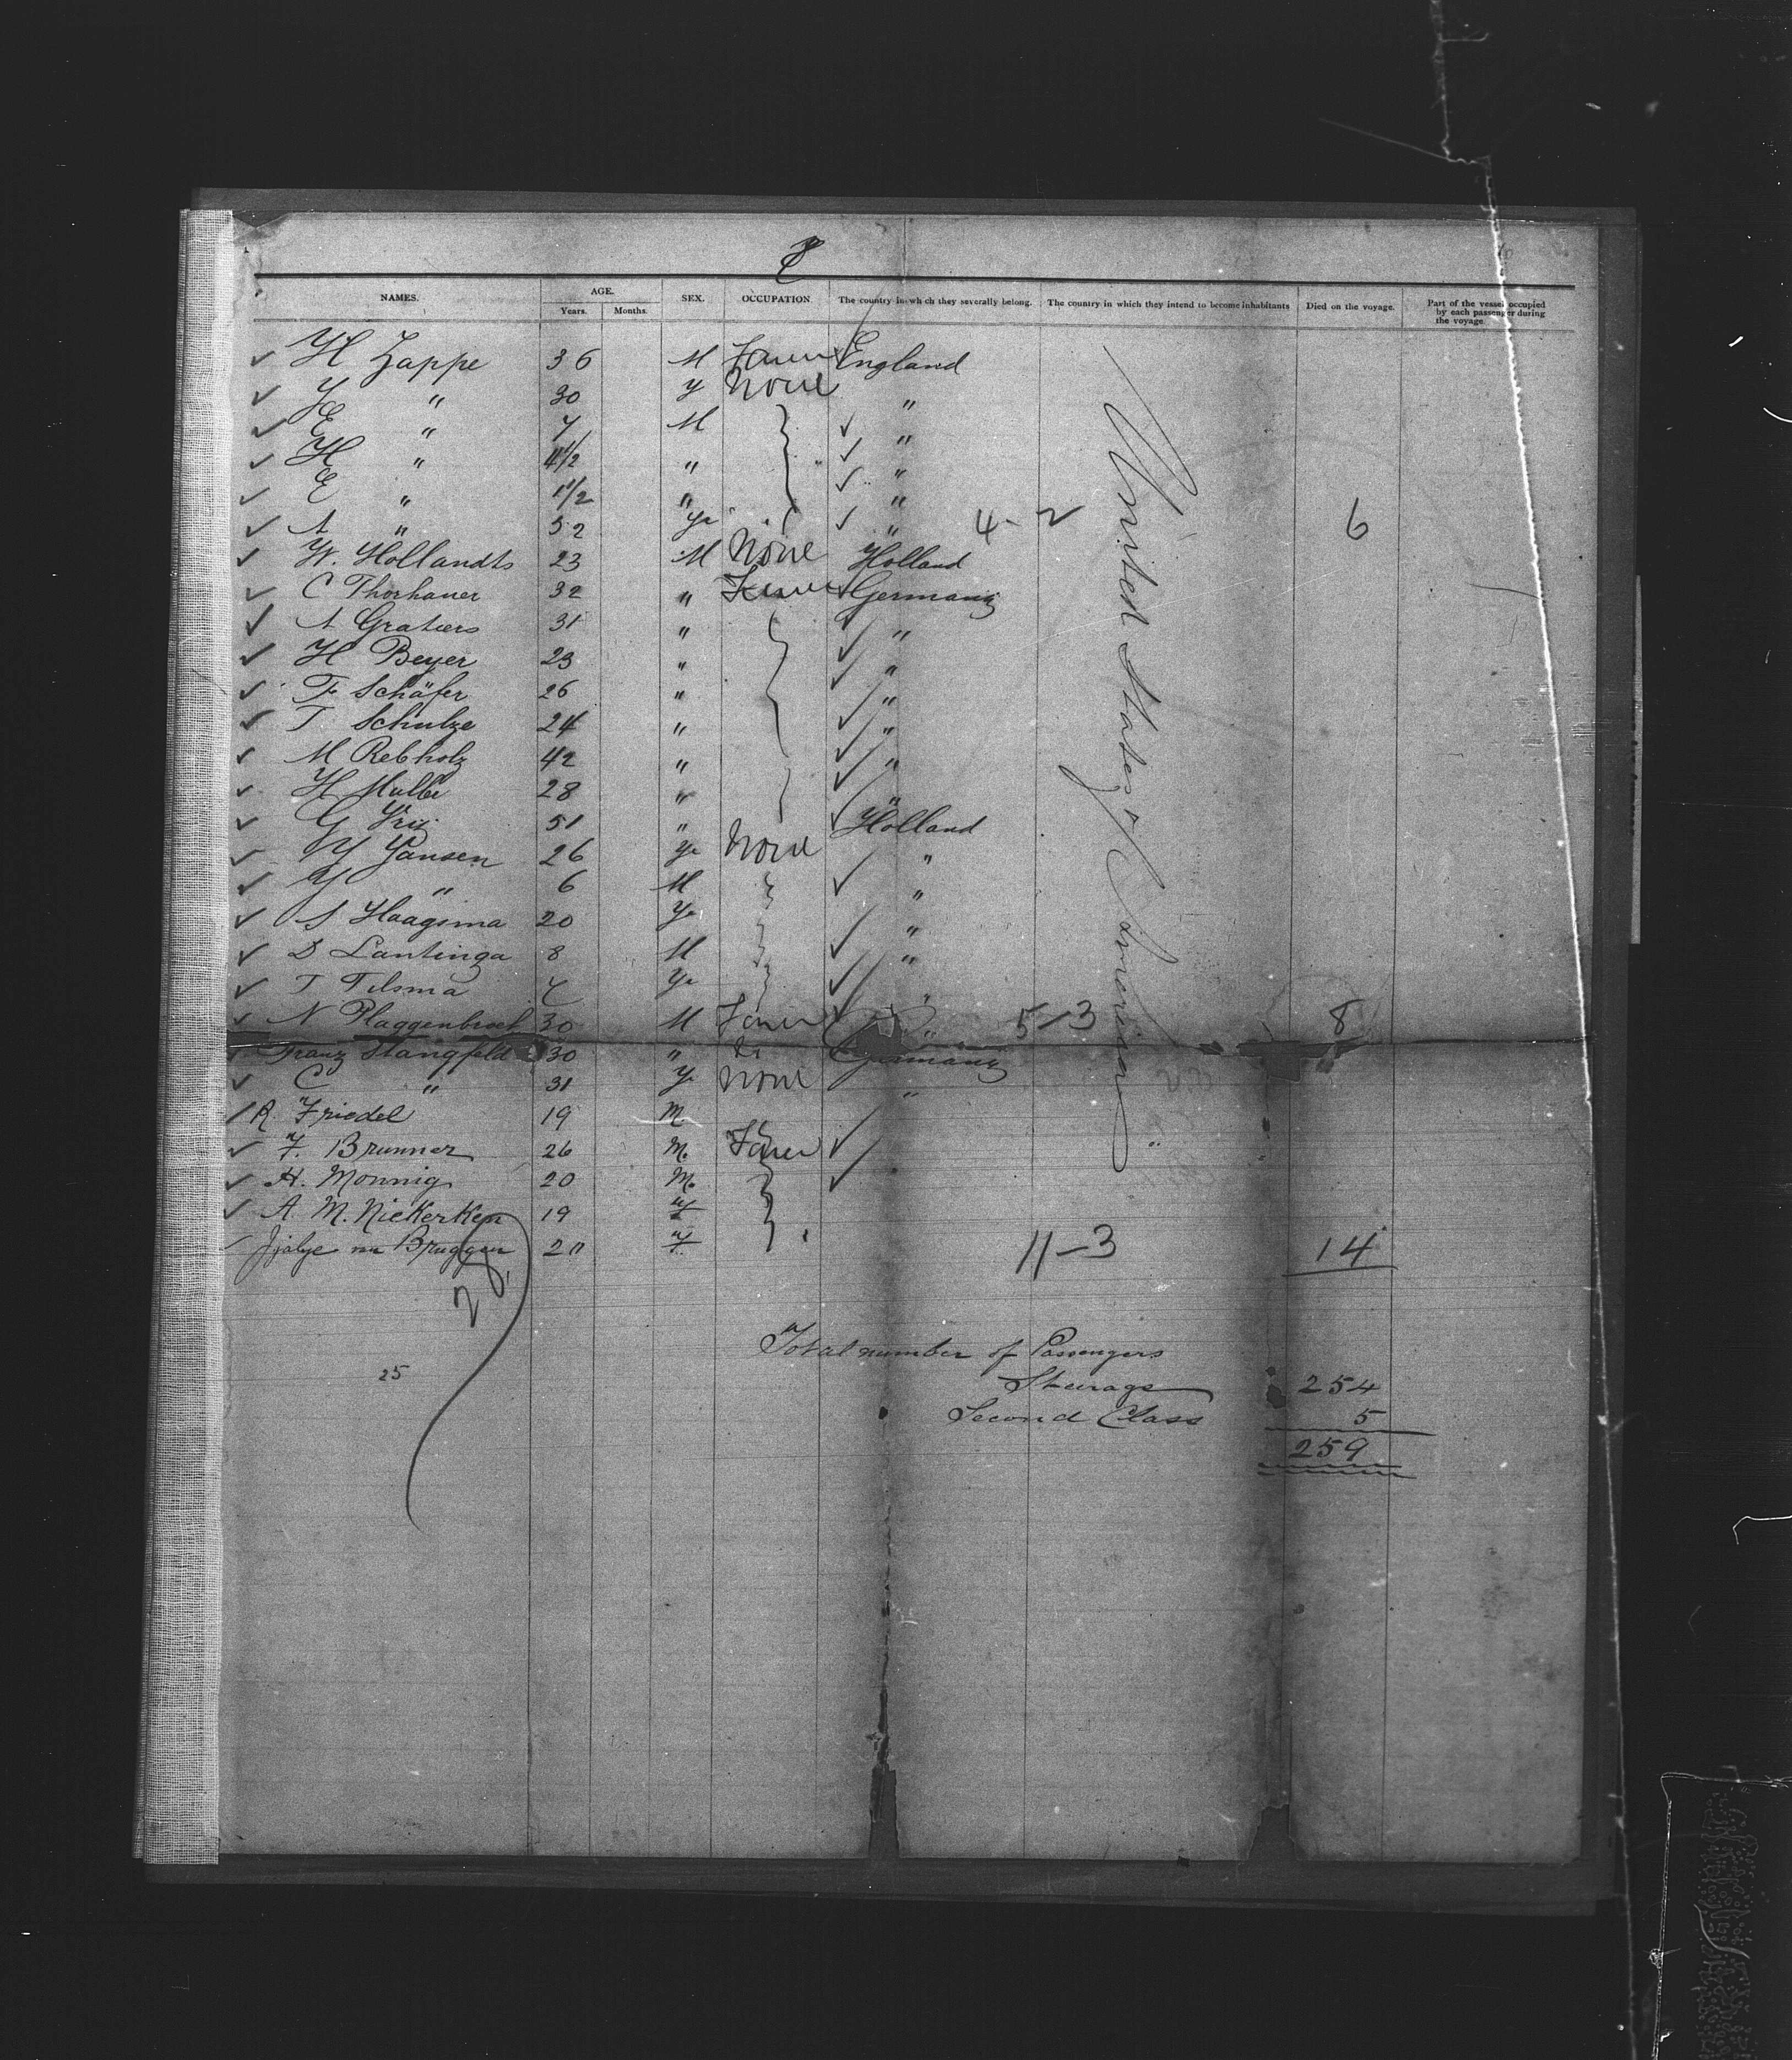 NAMES. AGE. SEX. OCCUPATION The country in which they severally belong. The country in which they intend to become inhabitants Died on the voyage. Part of the vessel occupied by each passenger during the voyage.
Years. Months.
H Zappe 36 M Farmer England
" 30 None "
E " 7 M "
H " 4 1/2 " "
E " 1 1/2 " "
A " 52 " 4-2 6
W. Hollandts 23 M None Holland
C Thorhauer 32 " Farmer Germany
A Graters 31 " "
H Beyer 23 " "
F Schäfer 26 " "
T. Schulze 24 " "
M Rebholz 42 " "
H Muller 28 " "
G 51 " Holland
Jansen 26 None "
" 6 M "
S Haagsma 20 "
D Lantinga 8 M "
T Tilsma "
N Plaggenbroek 30 M Farmer " 5-3 8
Franz Stangfeld 30 " Germany
C " 31 None "
R. Friedel 19 M
F. Brunner 26 M. Farmer
H. Monnig 20 M.
A. M. Niekerken 19 F
Bruggen 20 F. 11-3 14
United States of America
Total number of Passengers
25 Steerage 254
Second Class 5
259